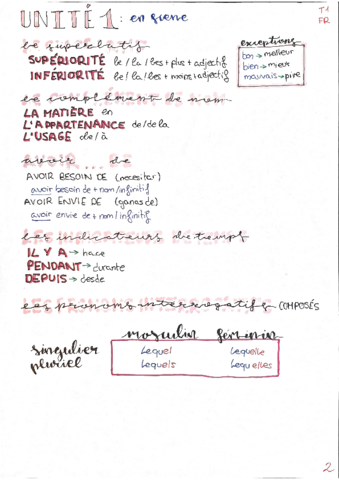 UNITÉ 1: en scène
T1
FR
le superlatif
SUPÉRIORITÉ le / la / les + plus + adjectif
INFÉRIORITÉ le / la / les + moins + adjectif
exceptions
bon → meilleur
bien → mieux
mauvais → pire
le complément de nom
LA MATIÈRE en
L'APPARTENANCE de/de la
L'USAGE de/à
avoir ... de
AVOIR BESOIN DE (necesitar)
avoir besoin de + nom/infinitif
AVOIR ENVIE DE (ganas de)
avoir envie de + nom/infinitif
les indicateurs de temps
IL Y A → hace
PENDANT → durante
DEPUIS → desde
les pronoms interrogatifs COMPOSÉS
masculin féminin
singulier Lequel Lequelle
pluriel Lequels Lequelles
2